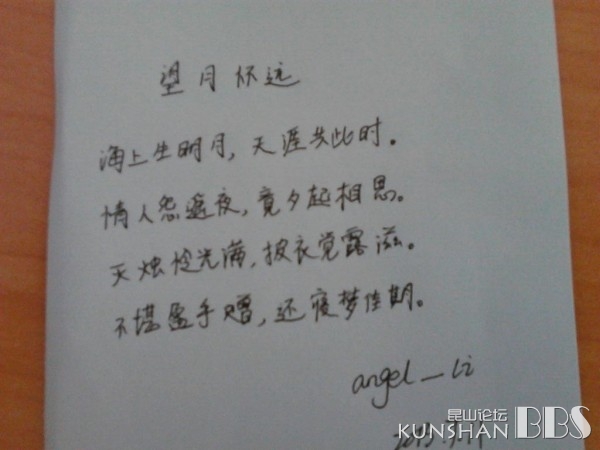 望月怀远
海上生明月，天涯共此时。
情人怨遥夜，竟夕起相思。
灭烛怜光满，披衣觉露滋。
不堪盈手赠，还寝梦佳期。
angel_Li
昆山论坛
KUNSHAN BBS